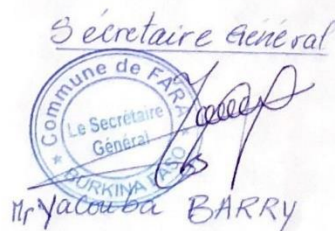 Secrétaire Général
Commune de FARA
Le Secrétaire
Général
★ BURKINA FASO ★
Mr Yacouba BARRY